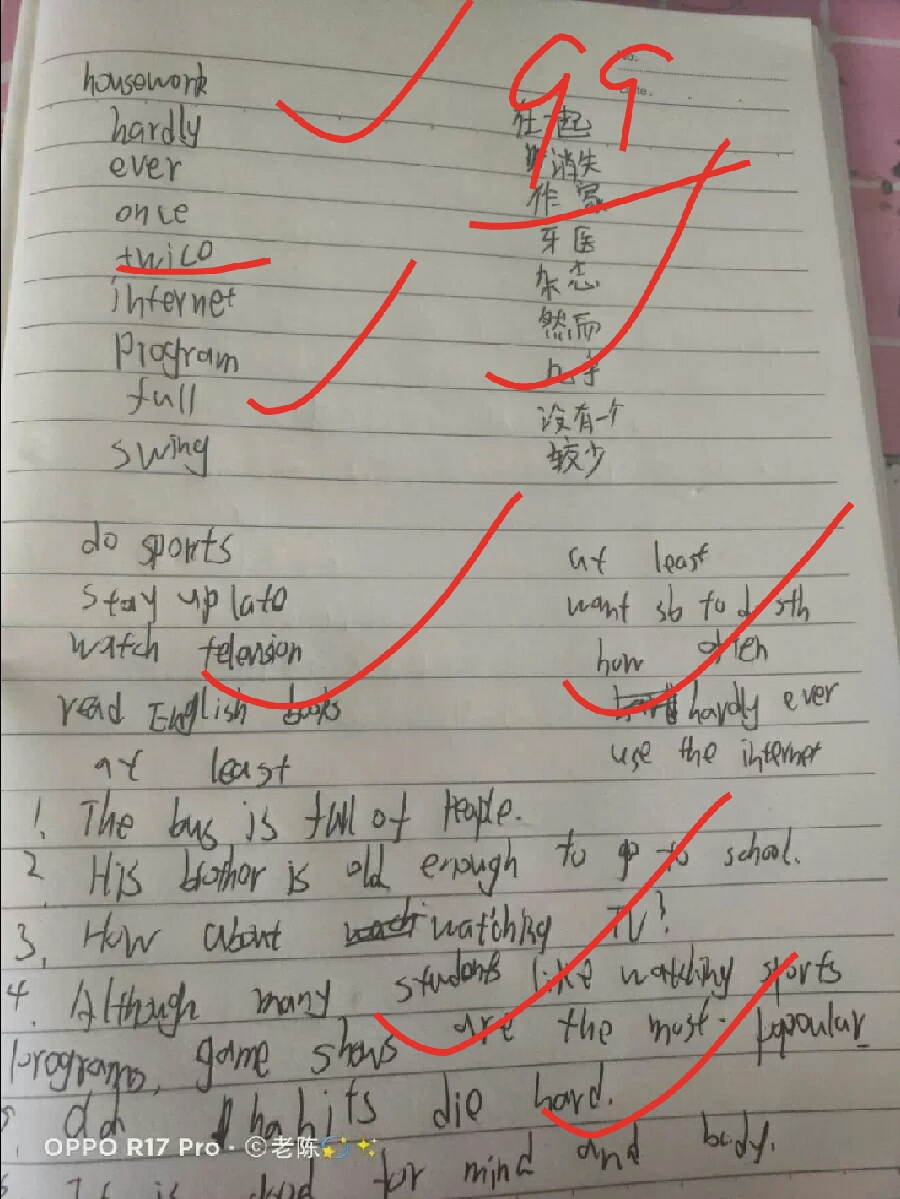 99
housework
hardly
ever
once
twice
internet
program
full
swing
在一起
消失
作家
牙医
杂志
然而
几乎
没有一个
较少
do sports
stay up late
watch television
read English books
at least
at least
want sb to do sth
how often
hardly ever
use the internet
1. The bus is full of people.
2 His brother is old enough to go to school.
3. How about watching TV?
4. Although many students like watching sports
programs, game shows are the most popoular
Old habits die hard.
It is good for mind and body.
OPPO R17 Pro · ©老陈💫✨